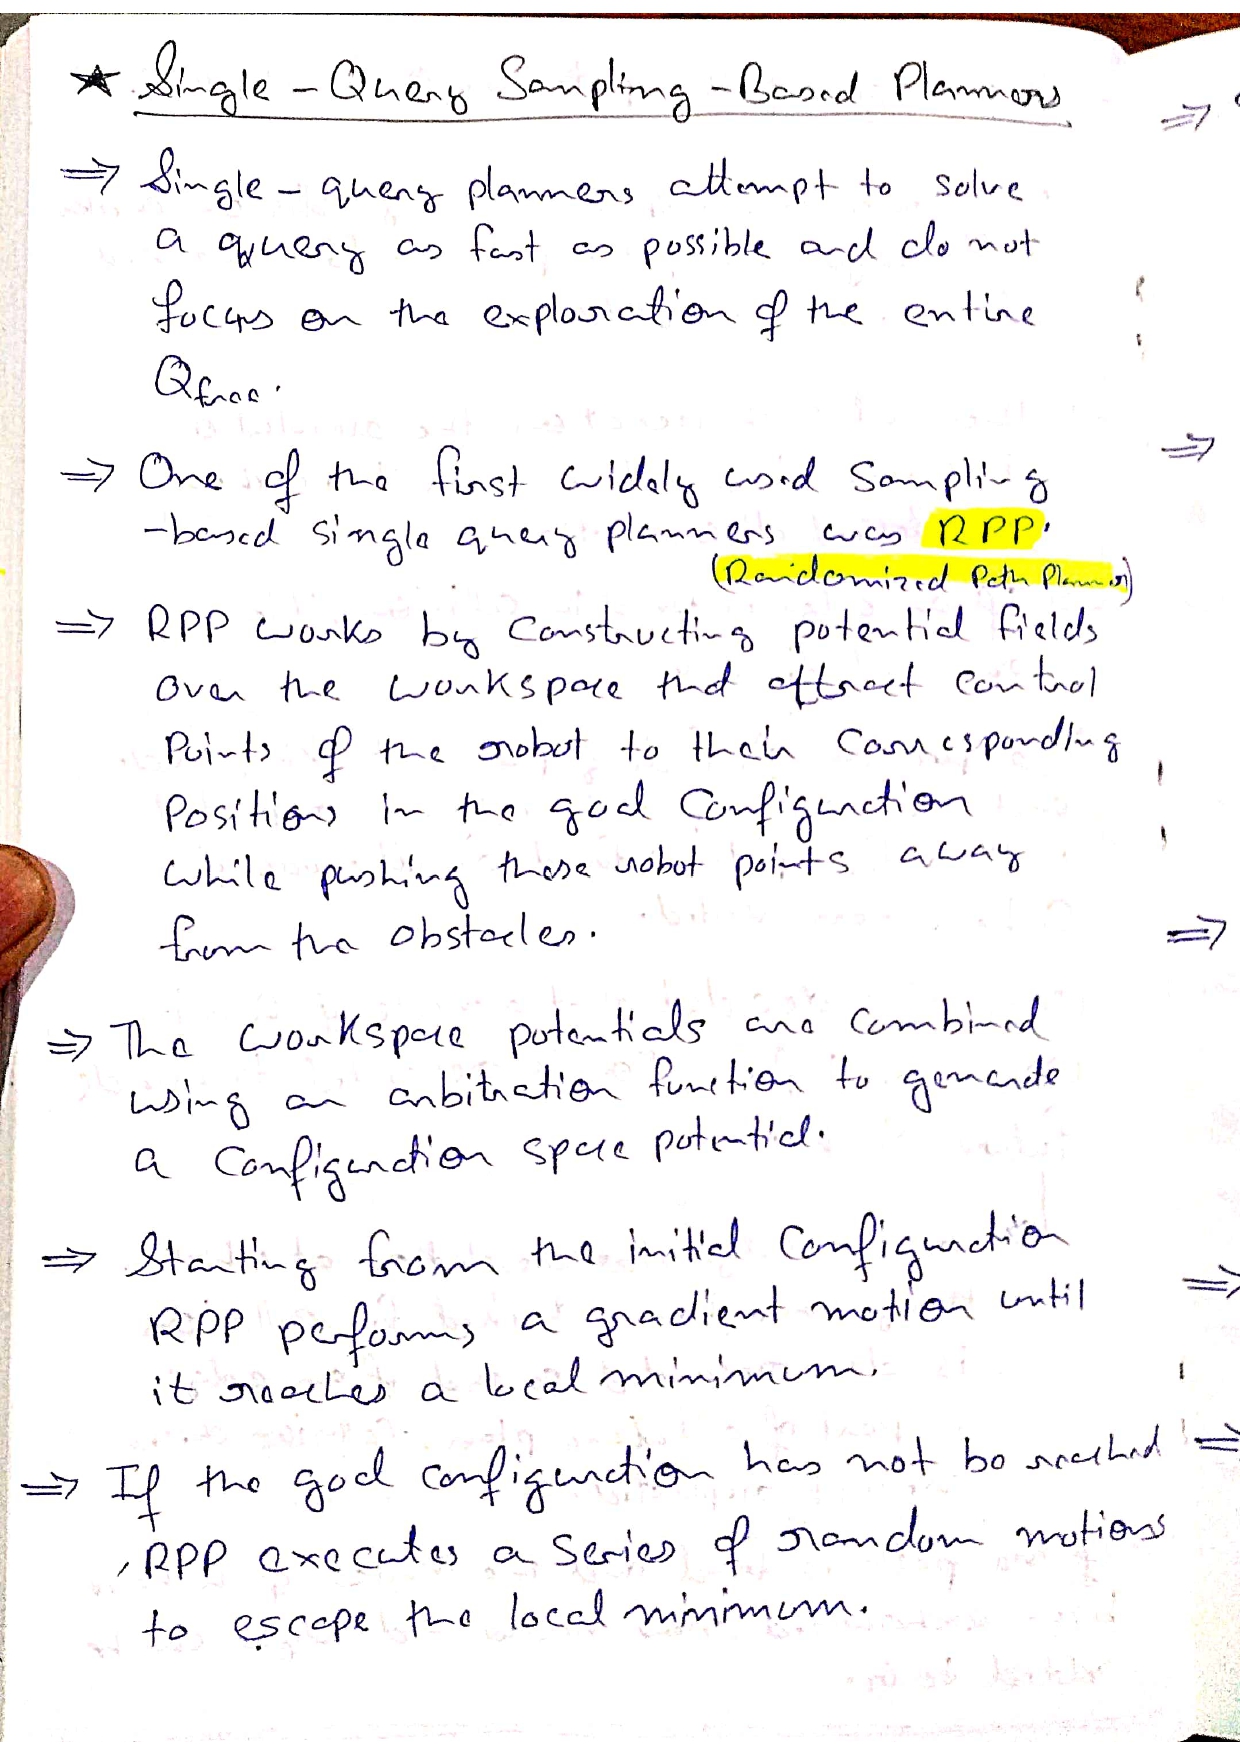 ★ Single - Query Sampling - Based Planners
⇒ Single - query planners attempt to solve
a query as fast as possible and do not
focus on the exploration of the entire
Qfree.
⇒ One of the first widely used Sampling
-based single query planners was RPP.
(Randomized Path Planner)
⇒ RPP works by Constructing potential fields
over the workspace that attract control
Points of the robot to their Corresponding
Positions in the goal Configuration
while pushing these robot points away
from the obstacles.
⇒ The workspace potentials are combined
using an arbitration function to generate
a Configuration space potential.
⇒ Starting from the initial Configuration
RPP performs a gradient motion until
it reaches a local minimum.
⇒ If the goal configuration has not be reached
, RPP executes a series of random motions
to escape the local minimum.